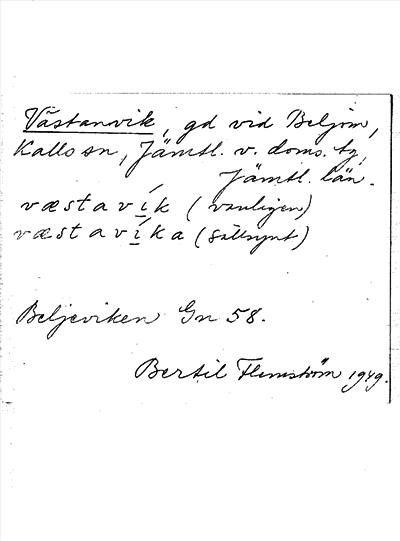 Västanvik, gd vid Beljom,
Kalls sn, Jämtl. v. doms. tg,
Jämtl. län.
væstavík (vanligen)
væstavíka (sällsynt)
Beljeviken Gn 58.
Bertil Flemström 1949.